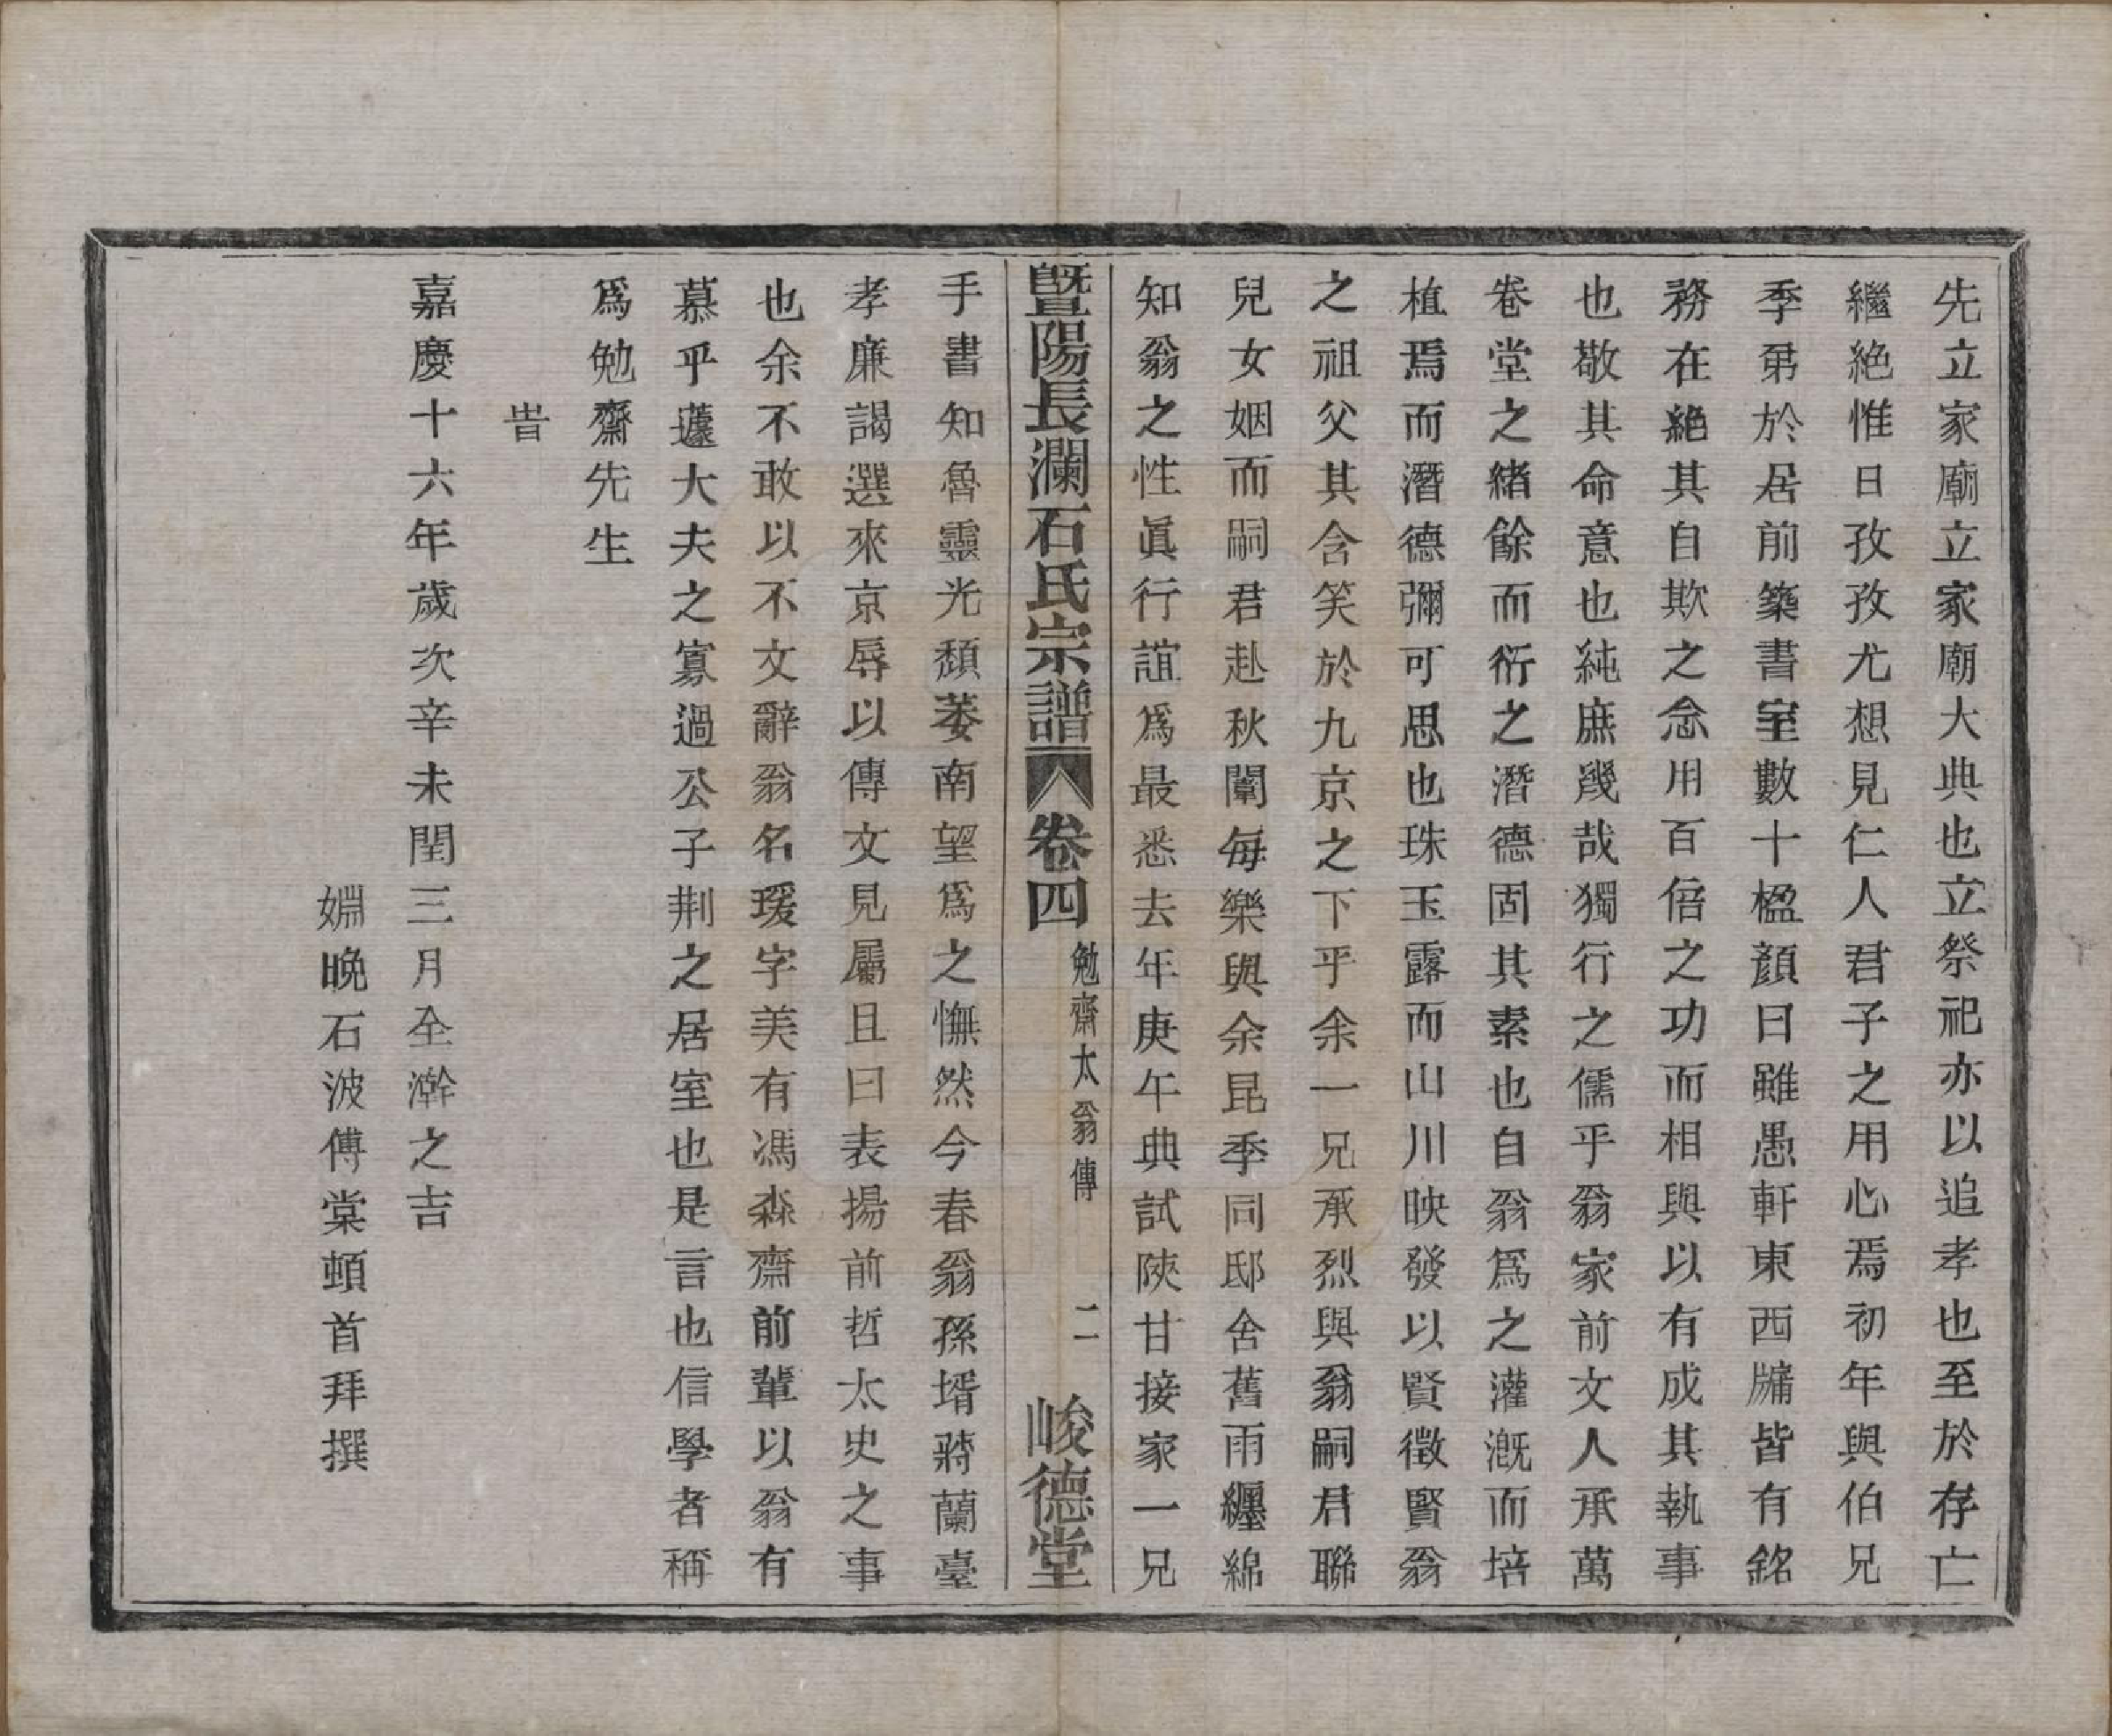 先立家廟立家廟大典也立祭祀亦以追孝也至於存亡
繼絶惟日孜孜尤想見仁人君子之用心焉初年與伯兄
季弟於居前築書室數十楹顏曰雖愚軒東西牖皆有銘
務在絶其自欺之念用百倍之功而相與以有成其執事
也敬其命意也純庶幾哉獨行之儒乎翁家前文人承萬
卷堂之緒餘而衍之潛德固其素也自翁爲之灌漑而培
植焉而潛德彌可思也珠玉露而山川映發以賢徵賢翁
之祖父其含笑於九京之下乎余一兄承烈與翁嗣君聯
兒女姻而嗣君赴秋闈每樂與余昆季同邸舍舊雨纒綿
知翁之性眞行誼爲最悉去年庚午典試陝甘接家一兄
暨陽長瀾石氏宗譜 卷四 勉齋太翁傳 二 峻德堂
手書知魯靈光頽萎南望爲之憮然今春翁孫壻蔣蘭臺
孝廉謁選來京辱以傳文見屬且曰表揚前哲太史之事
也余不敢以不文辭翁名瑗字美有馮淼齋前輩以翁有
慕乎蘧大夫之寡過公子荆之居室也是言也信學者稱
爲勉齋先生
旹
嘉慶十六年歲次辛未閏三月全澣之吉
婣晩石波傅棠頓首拜撰